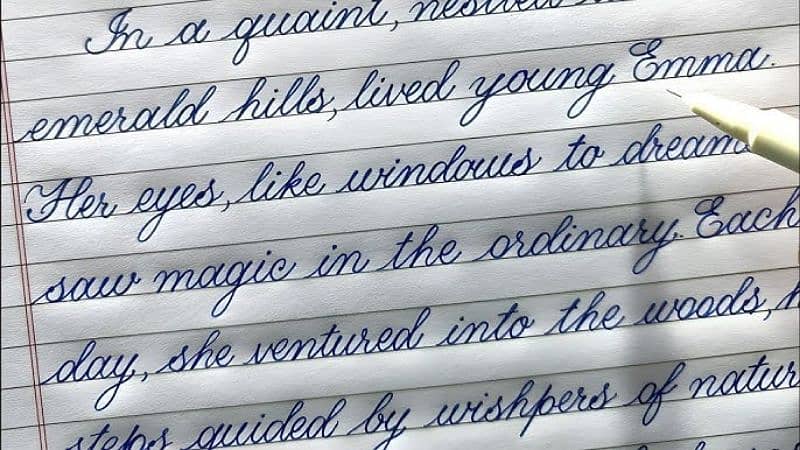 In a quaint, nestled
emerald hills, lived young Emma.
Her eyes, like windows to dream
saw magic in the ordinary. Each
day, she ventured into the woods, h
steps guided by wishpers of natur